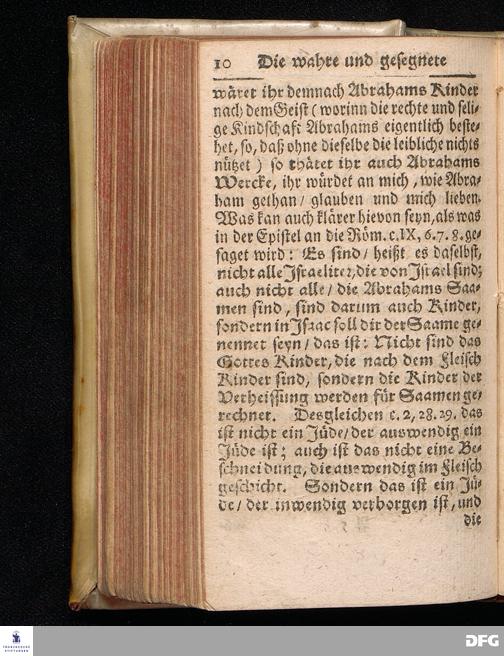 10 Die wahre und gesegnete
wäret ihr demnach Abrahams Kinder
nach dem Geist (worinn die rechte und seli-
ge Kindschaft Abrahams eigentlich beste-
het, so, daß ohne dieselbe die leibliche nichts
nützet) so thätet ihr auch Abrahams
Wercke, ihr würdet an mich, wie Abra-
ham gethan/ glauben und mich lieben.
Was kan auch klärer hievon seyn, als was
in der Epistel an die Röm. c. IX, 6. 7. 8. ge-
saget wird: Es sind/ heißt es daselbst,
nicht alle Israeliter, die von Israel sind;
auch nicht alle/ die Abrahams Saa-
men sind, sind darum auch Kinder,
sondern in Isaac soll dir der Saame ge-
nennet seyn/ das ist: Nicht sind das
Gottes Kinder, die nach dem Fleisch
Kinder sind, sondern die Kinder der
Verheissung werden für Saamen ge-
rechnet. Desgleichen c. 2, 28. 29. das
ist nicht ein Jüde/ der auswendig ein
Jüde ist; auch ist das nicht eine Be-
schneidung, die auswendig im Fleisch
geschicht. Sondern das ist ein Jü-
de/ der inwendig verborgen ist, und
die
FRANCKESCHE
STIFTUNGEN
DFG